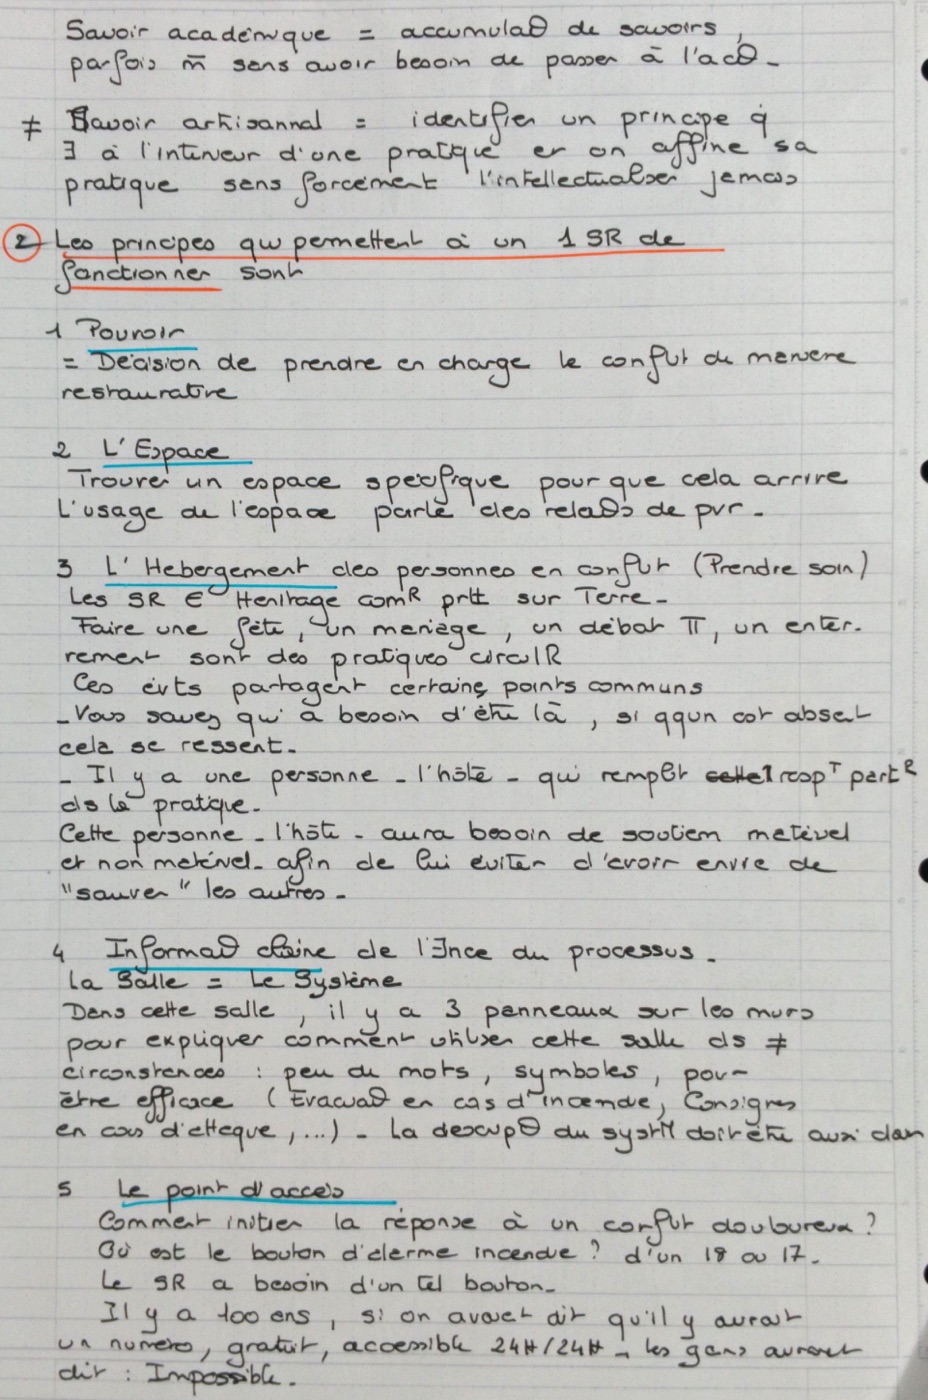 Savoir académique = accumulaθ de savoirs,
parfois m̄ sans avoir besoin de passer à l'acθ -
≠ Savoir artisannal = identifier un principe q̇
∃ à l'intérieur d'une pratique et on affine sa
pratique sans forcément l'intellectualiser jamais
② Les principes qui permettent à un 1 SR de
fonctionner sont
1 Pouvoir
= Décision de prendre en charge le conflit de manière
restaurative
2 L'Espace
Trouver un espace spécifique pour que cela arrive
L'usage de l'espace parle des relaθs de pvr -
3 L'Hebergement des personnes en conflit (Prendre soin)
Les SR ∈ Heritage comᴿ prtt sur Terre -
Faire une fête, un mariage, un débat π, un enter-
rement sont des pratiques circulR
Ces évts partagent certains points communs
- Vous savez qui a besoin d'être là, si qqun est absent
cela se ressent -
- Il y a une personne - l'hôte - qui remplit 1 respᵀ partᴿ
ds la pratique -
Cette personne - l'hôte - aura besoin de soutien matériel
et non matériel - afin de lui éviter d'avoir envie de
"sauver" les autres -
4 Informaθ claire de l'∃nce du processus -
La Salle = Le Système
Dans cette salle, il y a 3 panneaux sur les murs
pour expliquer comment utiliser cette salle ds ≠
circonstances : peu de mots, symboles, pou-
être efficace (Evacuaθ en cas d'incendie, Consignes
en cas d'attaque, ...) - La descripθ du systM doit être aussi clair
5 Le point d'accès
Comment initier la réponse à un conflit douloureux ?
Où est le bouton d'alarme incendie ? d'un 18 ou 17 -
Le SR a besoin d'un tel bouton -
Il y a 100 ans, si on avait dit qu'il y aurait
un numéro, gratuit, accessible 24H/24H - les gens auraient
dit : Impossible.